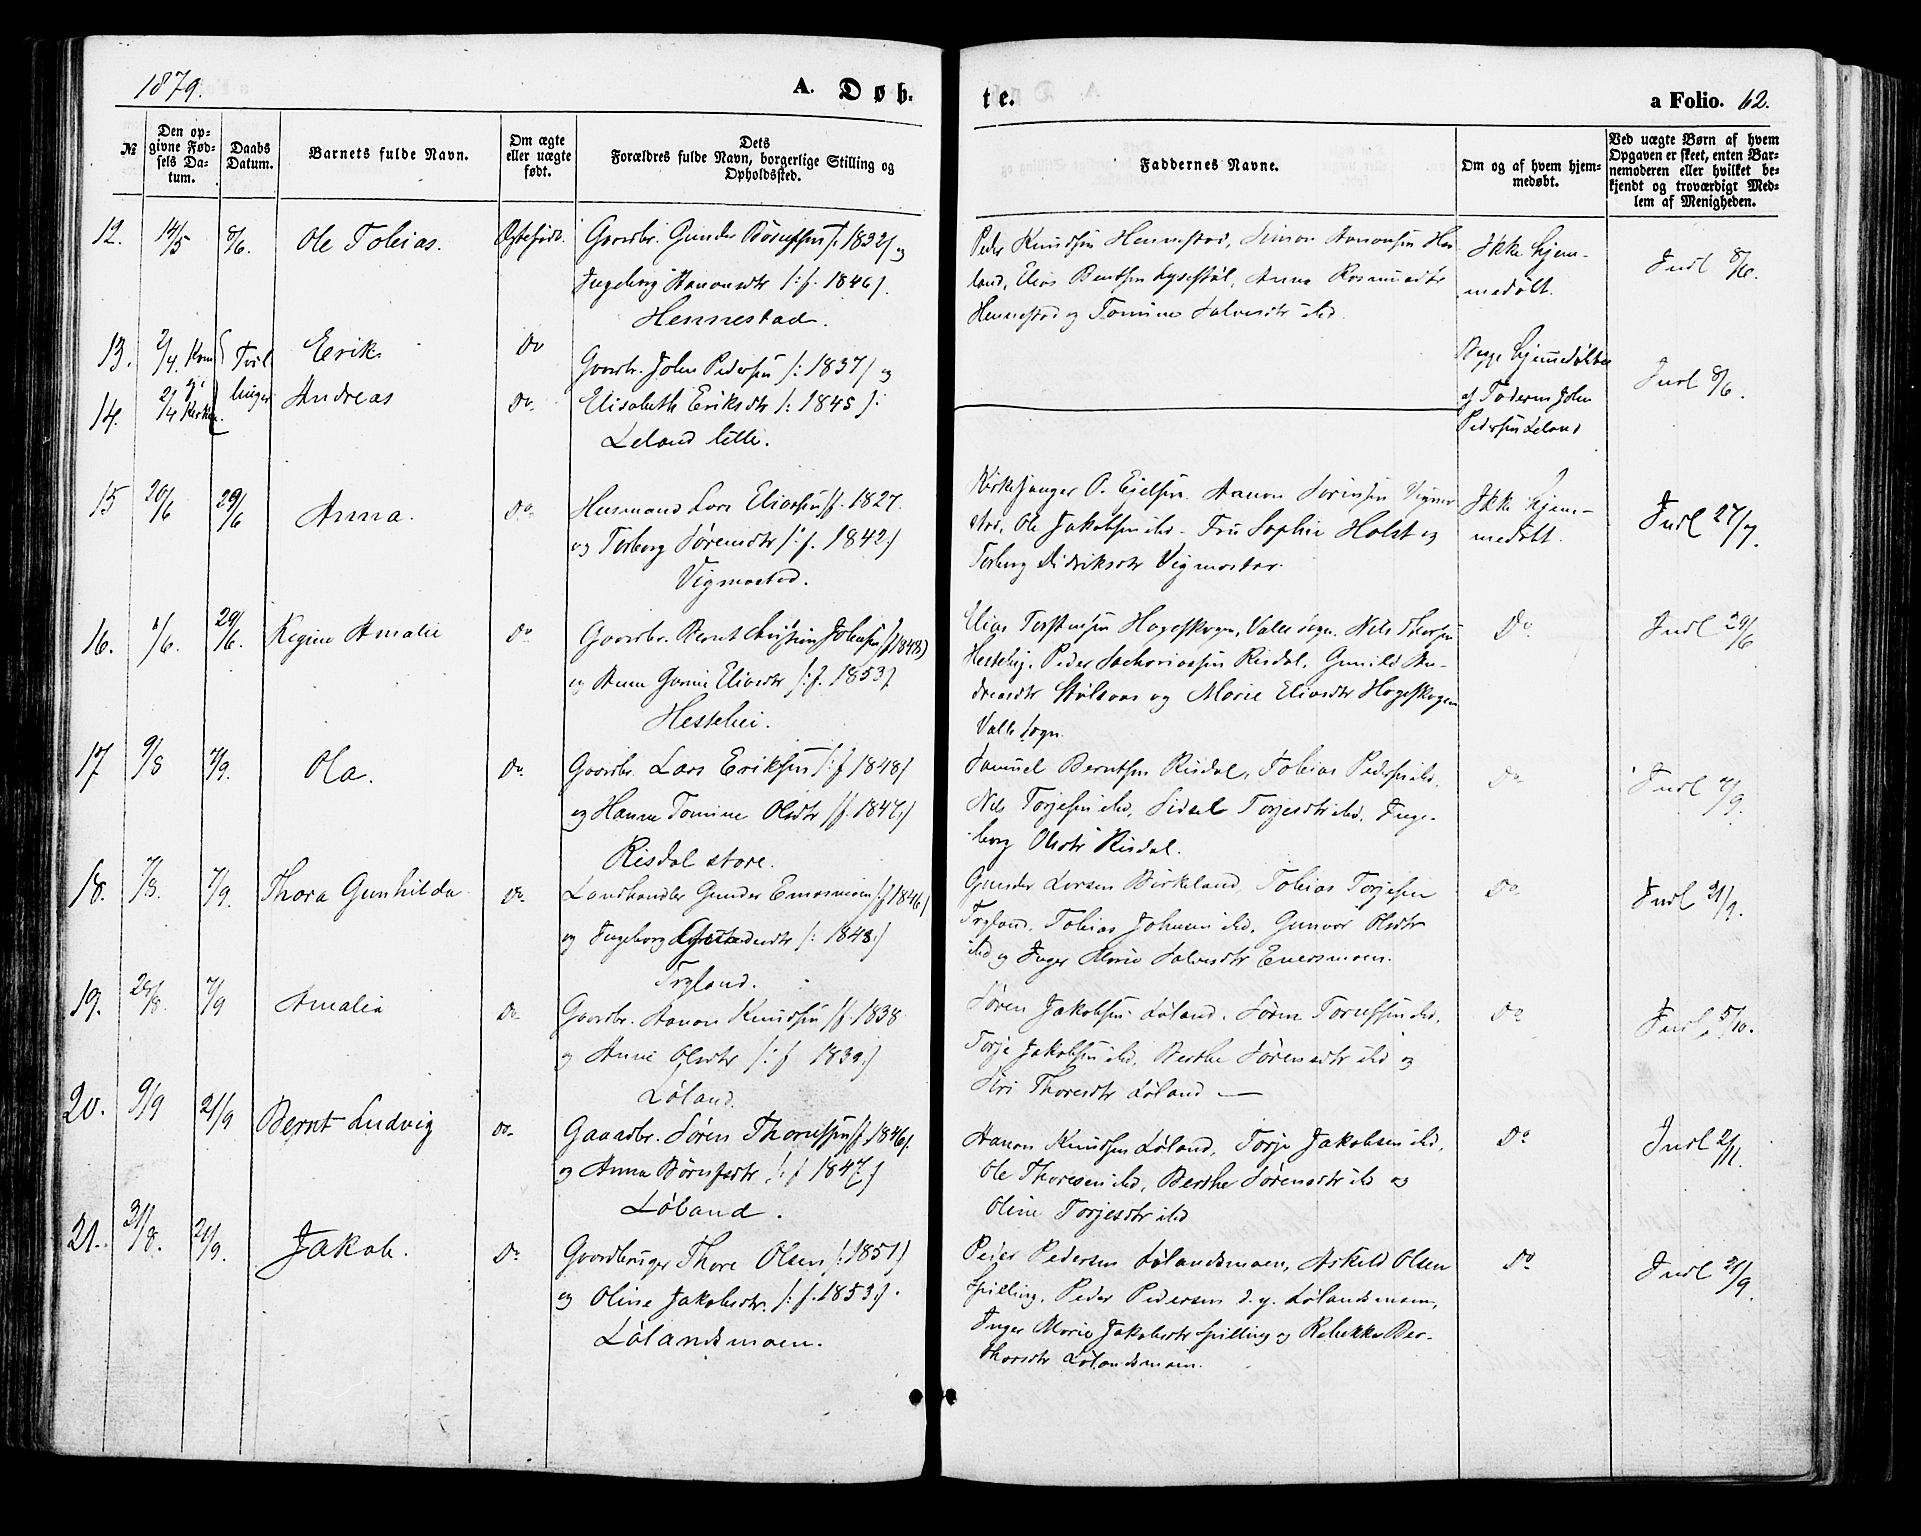 1879.
A. Døb-
te.
a Folio. 62.
№
Den op-
givne Fød-
sels Da-
tum.
Daabs
Datum.
Barnets fulde Navn.
Om ægte
eller uægte
født.
Dets
Forældres fulde Navn, borgerlige Stilling og
Opholdssted.
Faddernes Navne.
Om og af hvem hjem-
medøbt.
Ved uægte Børn af hvem
Opgaven er skeet, enten Bar-
nemoderen eller hvilket be-
kjendt og troværdigt Med-
lem af Menigheden.
12. 14/5 8/6. Ole Tobias. Ægtefødt.
Gaardbr. Gunder /: 1832/ og
Ingeborg Aanonsdtr /: f. 1846/.
Hennestad.
Peder Knudsen Hennestad, Simon Aanonsen
land, Elias Berntsen Anna Rasmusdtr
Hennestad og Tomine Salvesdtr ibd.
Ikke hjem-
medøbt.
Indl 8/6.
13. 2/4. Tvil Erik Do
14. 2/4 linger Andreas Do.
Gaardbr. John Pedersen /: 1837/ og
Elisabeth Eriksdtr /: 1845/:
Leland lille.
Begge hjemmedøbte
af Faderen John
Pedersen Leland
Indl 8/6.
15 20/6 29/6 Anna. Do
Husmand Lars Eliassen /f. 1827.
og Torborg Sørensdtr /: f. 1842:/
Vigmostad.
Kirkesanger O. Eielsen. Aanon Sørensen Vigmo
stad, Ole Jakobsen ibd. Fru Sophie Holst og
Torborg Didriksdtr Vigmostad.
Ikke hjem-
medøbt.
Indl 27/7.
16. 1/6. 29/6. Regine Amalie Do
Gaardbr. Bernt Johnsen /f 1848/
og Anne Gurine Eliasdtr /: f. 1853/.
Hestehei.
Elias Torstensen Hageskogen, Valle sogn. Nils Thorsen
Hestehei. Peder Sachariassen Risdal, Gunild An-
dreasdtr og Marie Eliasdtr Hageskogen
Valle sogn.
Do.
Indl 29/6
17 9/8 7/9. Ola. Do.
Gaardbr. Lars Eriksen /: f 1848/
og Hanne Tomine Olsdtr /f. 1847:/
Risdal store.
Samuel Berntsen Risdal, Tobias Pedersen ibd.
Nils Torjesen ibd, Sidsel Torjesdtr ibd, Inge-
borg Olsdtr Risdal.
Do.
Indl 7/9.
18. 7/8. 7/9. Thora Gunhilda Do.
Landhandler Gunder /: f 1846/
og Ingeborg /: 1848:/
Trygland.
Gunder Larsen Birkeland, Tobias Torjesen
Trygland, Tobias Johnsen ibd, Gunvor Olsdtr
ibd og Inger Marie Salvesdtr Enersmoen.
Do
Indl 21/9.
19. 7/9 Amalia Do.
Gaardbr. Aanon Knudsen /f. 1838
og Anne Olsdtr /: f 1839:/
Løland.
Søren Jakobsen Løland, Søren ibd,
Torje Jakobsen ibd, Berthe Sørensdtr ibd og
Siri Thoresdtr Løland —
Do
Indl 5/10.
20. 9/9 21/9 Bernt Ludvig Do.
Gaardbr. Søren /f. 1846/.
og Anna /: f 1847:/
Løland.
Aanon Knudsen Løland, Torje Jakobsen ibd,
Ole Thoresen ibd, Berthe Sørensdtr ibd og
Oline Torjesdtr ibd
Do
Indl 2/11.
21. 31/8. 21/9. Jakob. Do
Gaardbruger Thore Olsen /: 1851:/
og Oline Jakobsdtr. /: f. 1853:/.
Lølandsmoen.
Peder Pedersen Lølandsmoen, Askild Olsen
Spilling. Peder Pedersen d.y. Lølandsmoen,
Inger Marie Jakobsdtr Spilling og Rebekka Ber-
thasdtr Lølandsmoen.
Do
Indl 21/9.